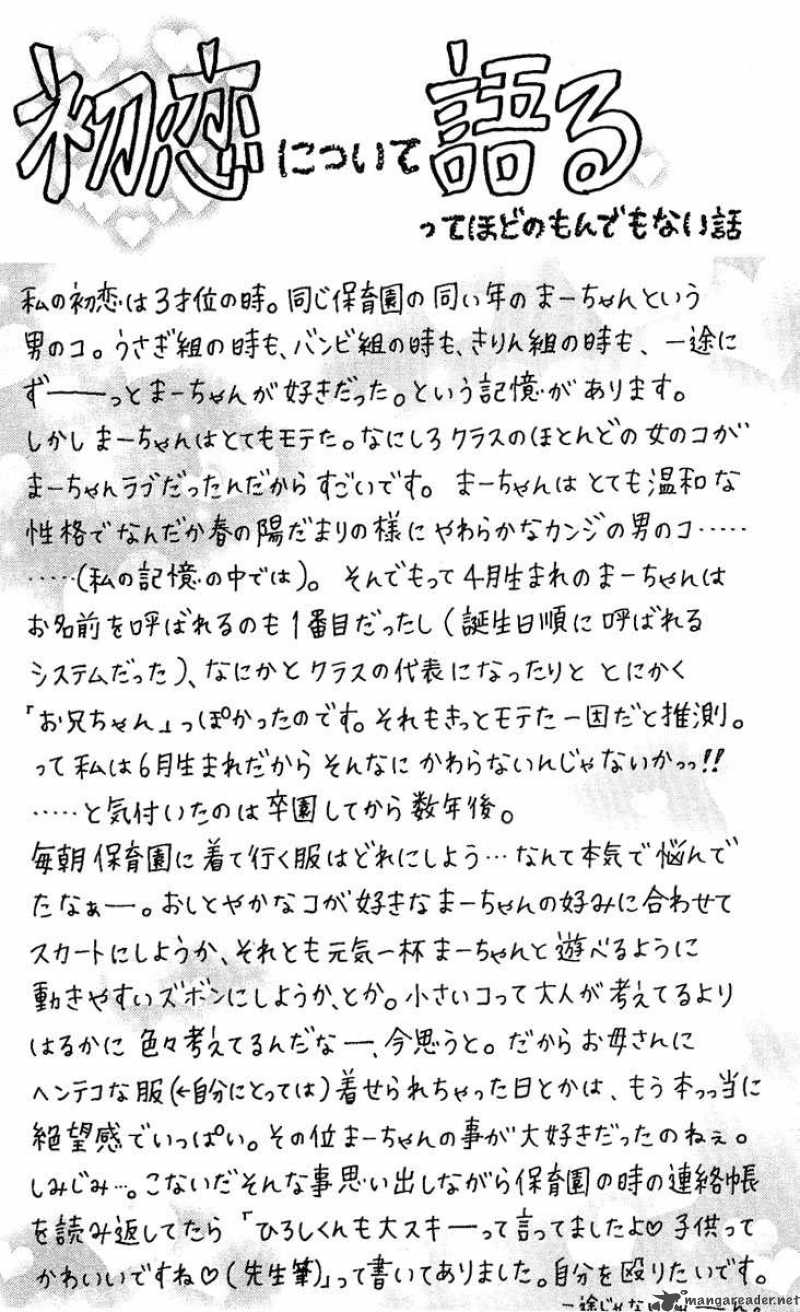 初恋について語る
ってほどのもんでもない話
私の初恋は3才位の時。同じ保育園の同い年のまーちゃんという
男のコ。うさぎ組の時も、バンビ組の時も、きりん組の時も、一途に
ず―――っとまーちゃんが好きだった。という記憶があります。
しかしまーちゃんはとてもモテた。なにしろクラスのほとんどの女のコが
まーちゃんラブだったんだからすごいです。 まーちゃんはとても温和な
性格でなんだか春の陽だまりの様にやわらかなカンジの男のコ……
……(私の記憶の中では)。そんでもって4月生まれのまーちゃんは
お名前を呼ばれるのも1番目だったし(誕生日順に呼ばれる
システムだった)、なにかとクラスの代表になったりと とにかく
「お兄ちゃん」っぽかったのです。それもきっとモテた一因だと推測。
って私は6月生まれだからそんなにかわらないんじゃないかっっ!!
……と気付いたのは卒園してから数年後。
毎朝保育園に着て行く服はどれにしよう…なんて本気で悩んで
たなぁー。おしとやかなコが好きなまーちゃんの好みに合わせて
スカートにしようか、それとも元気一杯まーちゃんと遊べるように
動きやすいズボンにしようか、とか。小さいコって大人が考えてるより
はるかに色々考えてるんだなー、今思うと。だからお母さんに
ヘンテコな服(←自分にとっては)着せられちゃった日とかは、もう本っっ当に
絶望感でいっぱい。その位まーちゃんの事が大好きだったのねぇ。
しみじみ…。こないだそんな事思い出しながら保育園の時の連絡帳
を読み返してたら「ひろしくんも大スキーって言ってましたよ♡子供って
かわいいですね♡(先生筆)」って書いてありました。自分を殴りたいです。
一途じゃな
mangareader.net